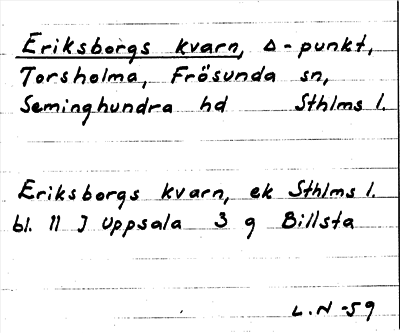 Eriksborgs kvarn, Δ-punkt,
Torsholma, Frösunda sn,
Seminghundra hd Sthlms l.
Eriksborgs kvarn, ek Sthlms l.
bl. 11 J Uppsala 3 g Billsta
L.N -59